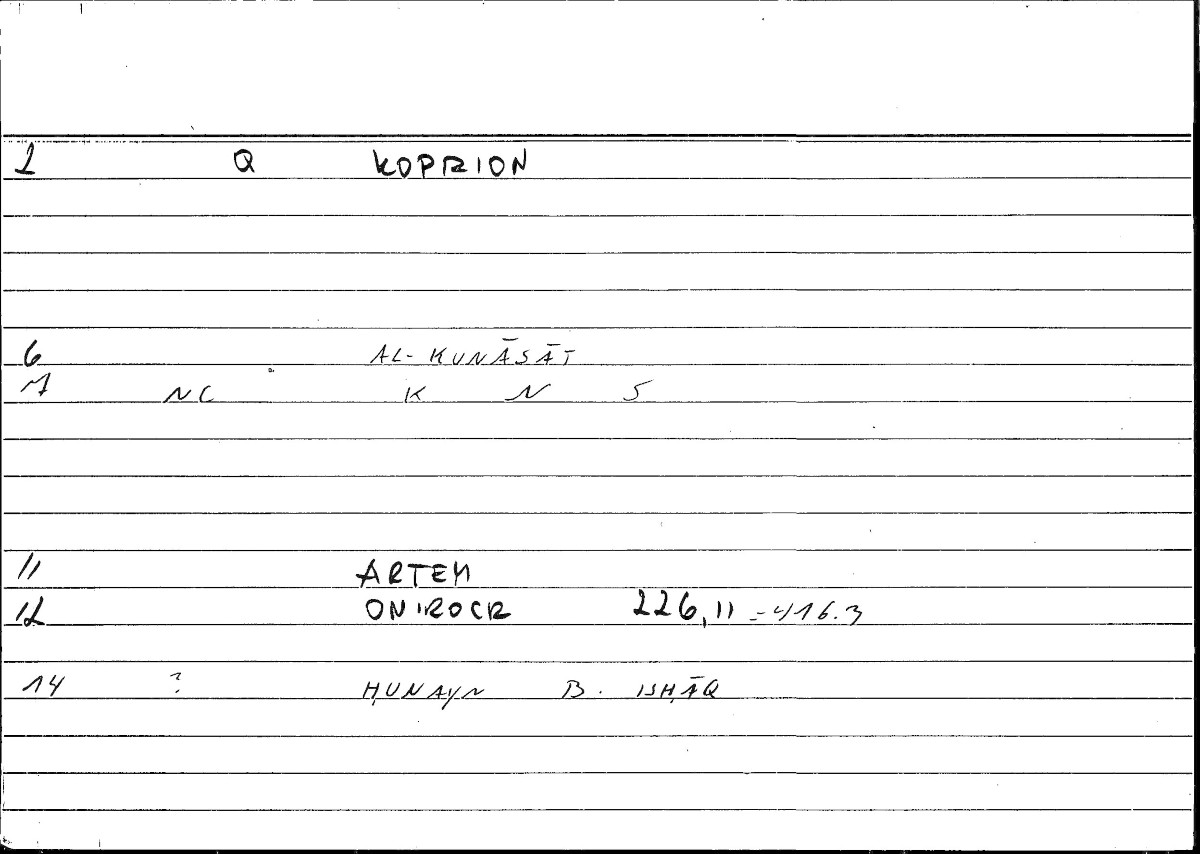 1 Q KOPRION
6 AL-KUNĀSĀT
7 NC K N S
11 ARTEM
12 ONIROCR 226,11 = 416.3
14 ? ḤUNAYN B. ISḤĀQ